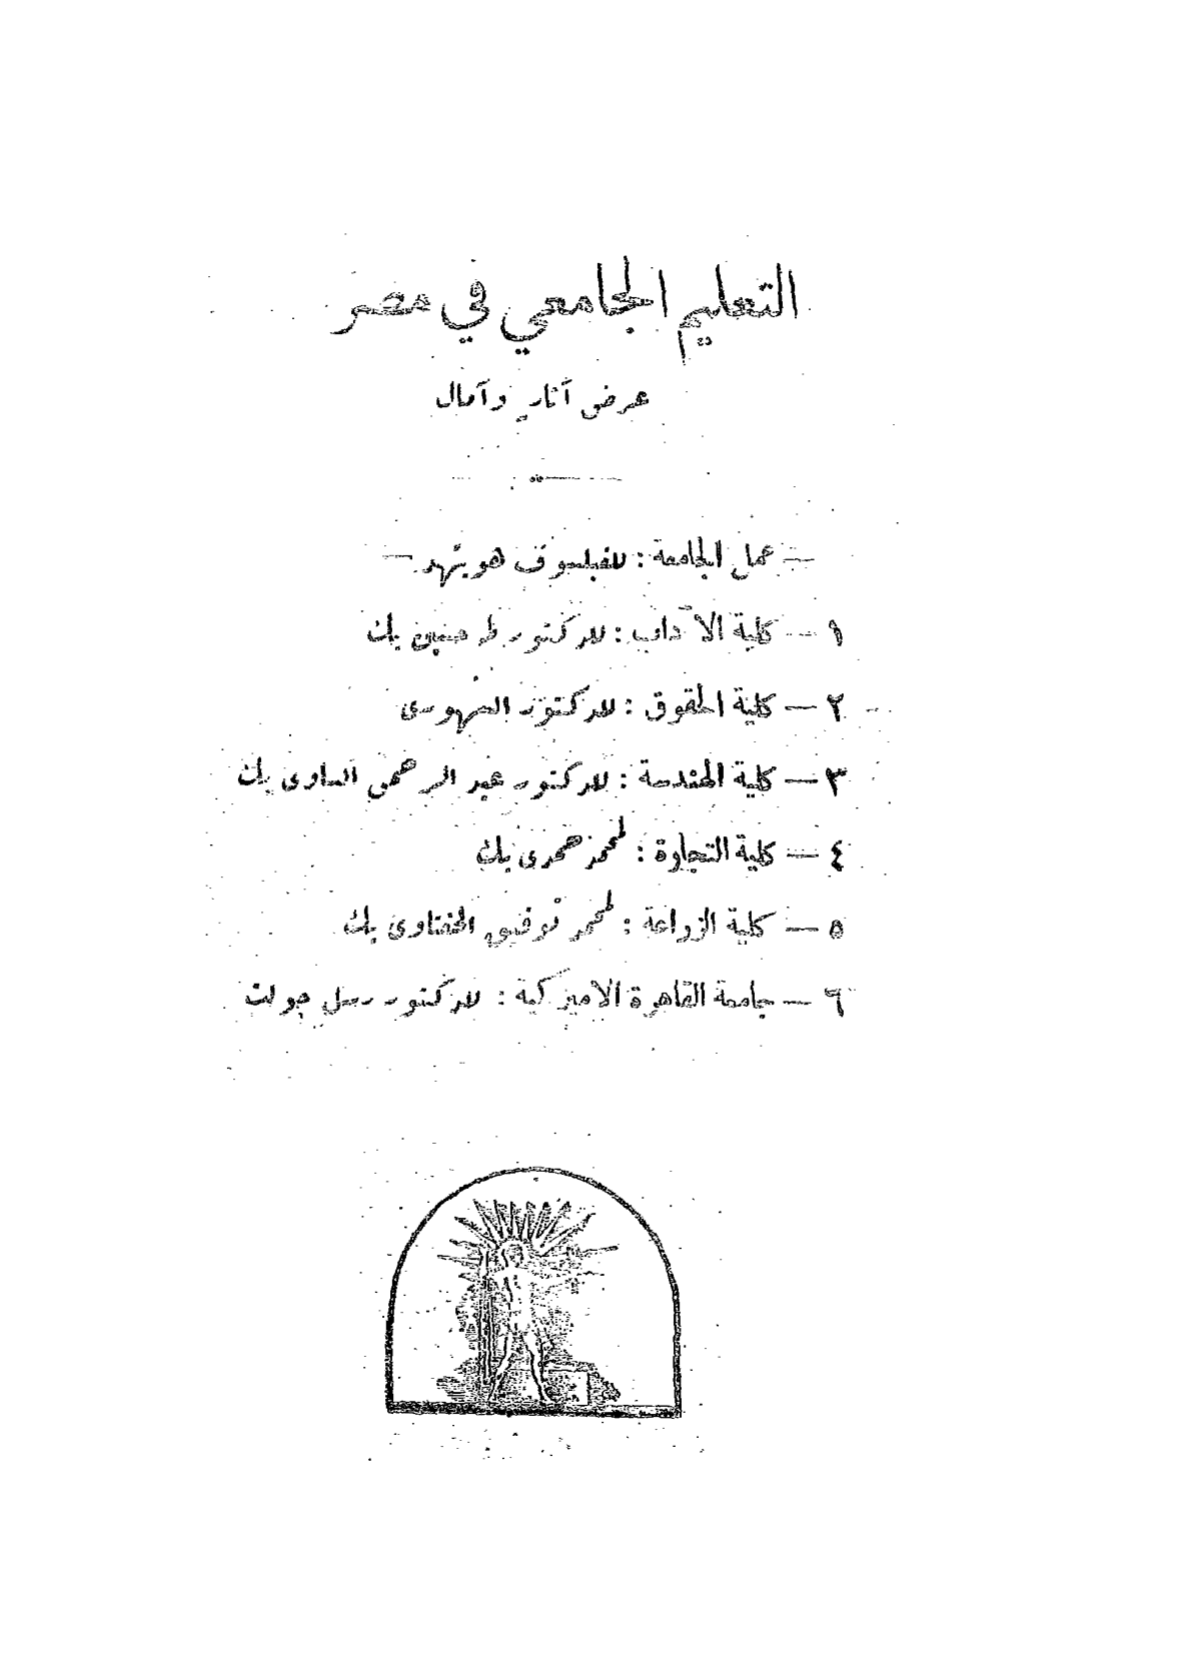 التعليم الجامعي في مصر
عرض آثار وآمال
— عمل الجامعة : للفيلسوف هويتهد —
١ — كلية الآداب : للدكتور طه حسين بك
٢ — كلية الحقوق : للدكتور السنهوري
٣ — كلية الهندسة : للدكتور عبد الرحمن الساوى بك
٤ — كلية التجارة : لمحمد حمدى بك
٥ — كلية الزراعة : لمحمد توفيق الحفناوى بك
٦ — جامعة القاهرة الاميركية : للدكتور رسل جولت